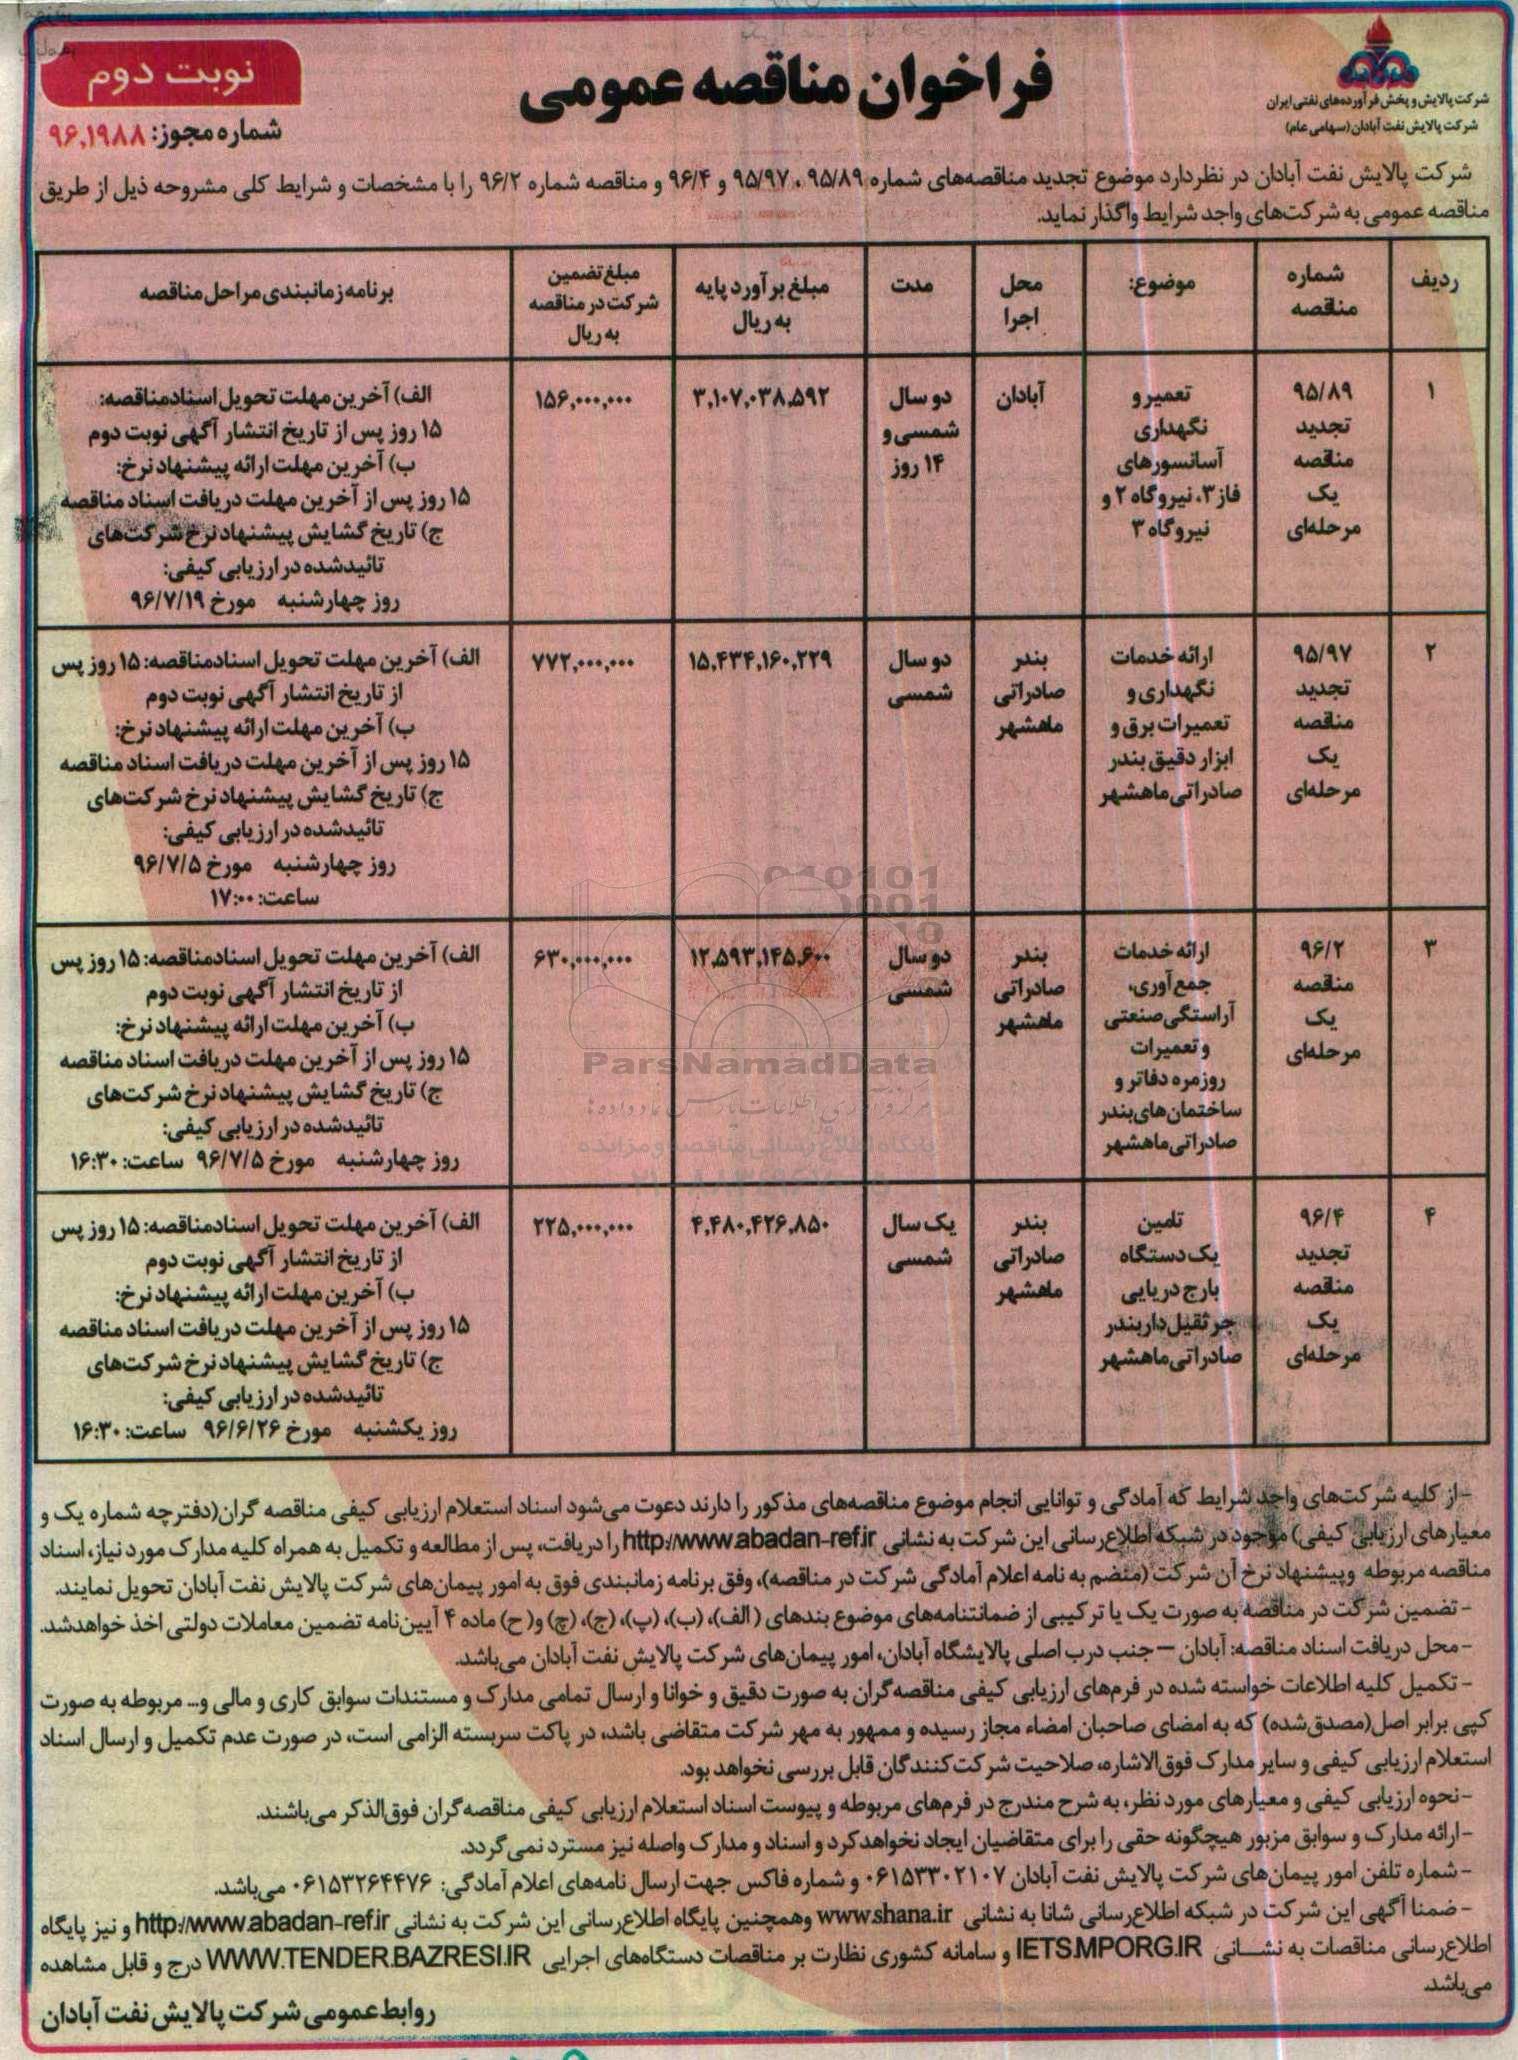 شرکت پالایش و پخش فرآورده‌های نفتی ایران
شرکت پالایش نفت آبادان (سهامی عام)
فراخوان مناقصه عمومی
نوبت دوم
شماره مجوز: ۹۶,۱۹۸۸
شرکت پالایش نفت آبادان در نظردارد موضوع تجدید مناقصه‌های شماره ۹۵/۸۹ ، ۹۵/۹۷ و ۹۶/۴ و مناقصه شماره ۹۶/۲ را با مشخصات و شرایط کلی مشروحه ذیل از طریق
مناقصه عمومی به شرکت‌های واجد شرایط واگذار نماید.
ردیف
شماره
مناقصه
موضوع:
محل
اجرا
مدت
مبلغ برآورد پایه
به ریال
مبلغ تضمین
شرکت در مناقصه
به ریال
برنامه زمانبندی مراحل مناقصه
۱
۹۵/۸۹
تجدید
مناقصه
یک
مرحله‌ای
تعمیر و
نگهداری
آسانسورهای
فاز۳، نیروگاه ۲ و
نیروگاه ۳
آبادان
دو سال
شمسی و
۱۴ روز
۳,۱۰۷,۰۳۸,۵۹۲
۱۵۶,۰۰۰,۰۰۰
الف) آخرین مهلت تحویل اسنادمناقصه:
۱۵ روز پس از تاریخ انتشار آگهی نوبت دوم
ب) آخرین مهلت ارائه پیشنهاد نرخ:
۱۵ روز پس از آخرین مهلت دریافت اسناد مناقصه
ج) تاریخ گشایش پیشنهاد نرخ شرکت‌های
تائیدشده در ارزیابی کیفی:
روز چهارشنبه مورخ ۹۶/۷/۱۹
۲
۹۵/۹۷
تجدید
مناقصه
یک
مرحله‌ای
ارائه خدمات
نگهداری و
تعمیرات برق و
ابزار دقیق بندر
صادراتی ماهشهر
بندر
صادراتی
ماهشهر
دو سال
شمسی
۱۵,۴۳۴,۱۶۰,۲۲۹
۷۷۲,۰۰۰,۰۰۰
الف) آخرین مهلت تحویل اسنادمناقصه: ۱۵ روز پس
از تاریخ انتشار آگهی نوبت دوم
ب) آخرین مهلت ارائه پیشنهاد نرخ:
۱۵ روز پس از آخرین مهلت دریافت اسناد مناقصه
ج) تاریخ گشایش پیشنهاد نرخ شرکت‌های
تائیدشده در ارزیابی کیفی:
روز چهارشنبه مورخ ۹۶/۷/۵
ساعت: ۱۷:۰۰
۳
۹۶/۲
مناقصه
یک
مرحله‌ای
ارائه خدمات
جمع‌آوری،
آراستگی صنعتی
و تعمیرات
روزمره دفاتر و
ساختمان‌های بندر
صادراتی ماهشهر
بندر
صادراتی
ماهشهر
دو سال
شمسی
۱۲,۵۹۳,۱۴۵,۶۰۰
۶۳۰,۰۰۰,۰۰۰
الف) آخرین مهلت تحویل اسنادمناقصه: ۱۵ روز پس
از تاریخ انتشار آگهی نوبت دوم
ب) آخرین مهلت ارائه پیشنهاد نرخ:
۱۵ روز پس از آخرین مهلت دریافت اسناد مناقصه
ج) تاریخ گشایش پیشنهاد نرخ شرکت‌های
تائیدشده در ارزیابی کیفی:
روز چهارشنبه مورخ ۹۶/۷/۵ ساعت: ۱۶:۳۰
۴
۹۶/۴
تجدید
مناقصه
یک
مرحله‌ای
تامین
یک دستگاه
بارج دریایی
جرثقیل دار بندر
صادراتی ماهشهر
بندر
صادراتی
ماهشهر
یک سال
شمسی
۴,۴۸۰,۴۲۶,۸۵۰
۲۲۵,۰۰۰,۰۰۰
الف) آخرین مهلت تحویل اسنادمناقصه: ۱۵ روز پس
از تاریخ انتشار آگهی نوبت دوم
ب) آخرین مهلت ارائه پیشنهاد نرخ:
۱۵ روز پس از آخرین مهلت دریافت اسناد مناقصه
ج) تاریخ گشایش پیشنهاد نرخ شرکت‌های
تائیدشده در ارزیابی کیفی:
روز یکشنبه مورخ ۹۶/۶/۲۶ ساعت: ۱۶:۳۰
ParsNamadData
- از کلیه شرکت‌های واجد شرایط که آمادگی و توانایی انجام موضوع مناقصه‌های مذکور را دارند دعوت می‌شود اسناد استعلام ارزیابی کیفی مناقصه گران(دفترچه شماره یک و
معیارهای ارزیابی کیفی) موجود در شبکه اطلاع‌رسانی این شرکت به نشانی http://www.abadan-ref.ir را دریافت، پس از مطالعه و تکمیل به همراه کلیه مدارک مورد نیاز، اسناد
مناقصه مربوطه وپیشنهاد نرخ آن شرکت (منضم به نامه اعلام آمادگی شرکت در مناقصه)، وفق برنامه زمانبندی فوق به امور پیمان‌های شرکت پالایش نفت آبادان تحویل نمایند.
- تضمین شرکت در مناقصه به صورت یک یا ترکیبی از ضمانتنامه‌های موضوع بندهای (الف)، (ب)، (پ)، (ج)، (چ) و( ح) ماده ۴ آیین‌نامه تضمین معاملات دولتی اخذ خواهدشد.
- محل دریافت اسناد مناقصه: آبادان – جنب درب اصلی پالایشگاه آبادان، امور پیمان‌های شرکت پالایش نفت آبادان می‌باشد.
- تکمیل کلیه اطلاعات خواسته شده در فرم‌های ارزیابی کیفی مناقصه‌گران به صورت دقیق و خوانا و ارسال تمامی مدارک و مستندات سوابق کاری و مالی و... مربوطه به صورت
کپی برابر اصل(مصدق‌شده) که به امضای صاحبان امضاء مجاز رسیده و ممهور به مهر شرکت متقاضی باشد، در پاکت سربسته الزامی است، در صورت عدم تکمیل و ارسال اسناد
استعلام ارزیابی کیفی و سایر مدارک فوق‌الاشاره، صلاحیت شرکت‌کنندگان قابل بررسی نخواهد بود.
- نحوه ارزیابی کیفی و معیارهای مورد نظر، به شرح مندرج در فرم‌های مربوطه و پیوست اسناد استعلام ارزیابی کیفی مناقصه‌گران فوق‌الذکر می‌باشند.
- ارائه مدارک و سوابق مزبور هیچگونه حقی را برای متقاضیان ایجاد نخواهدکرد و اسناد و مدارک واصله نیز مسترد نمی‌گردد.
- شماره تلفن امور پیمان‌های شرکت پالایش نفت آبادان ۰۶۱۵۳۳۰۲۱۰۷ و شماره فاکس جهت ارسال نامه‌های اعلام آمادگی: ۰۶۱۵۳۲۶۴۴۷۶ می‌باشد.
- ضمنا آگهی این شرکت در شبکه اطلاع‌رسانی شانا به نشانی www.shana.ir وهمچنین پایگاه اطلاع‌رسانی این شرکت به نشانی http://www.abadan-ref.ir و نیز پایگاه
اطلاع‌رسانی مناقصات به نشـــانی IETS.MPORG.IR و سامانه کشوری نظارت بر مناقصات دستگاه‌های اجرایی WWW.TENDER.BAZRESI.IR درج و قابل مشاهده
می‌باشد.
روابط عمومی شرکت پالایش نفت آبادان